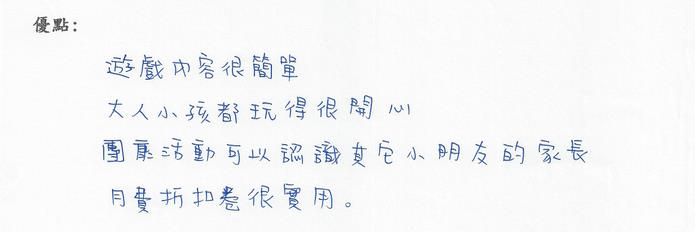 優點：
遊戲內容很簡單
大人小孩都玩得很開心
團康活動可以認識其它小朋友的家長
月費折扣卷很實用。